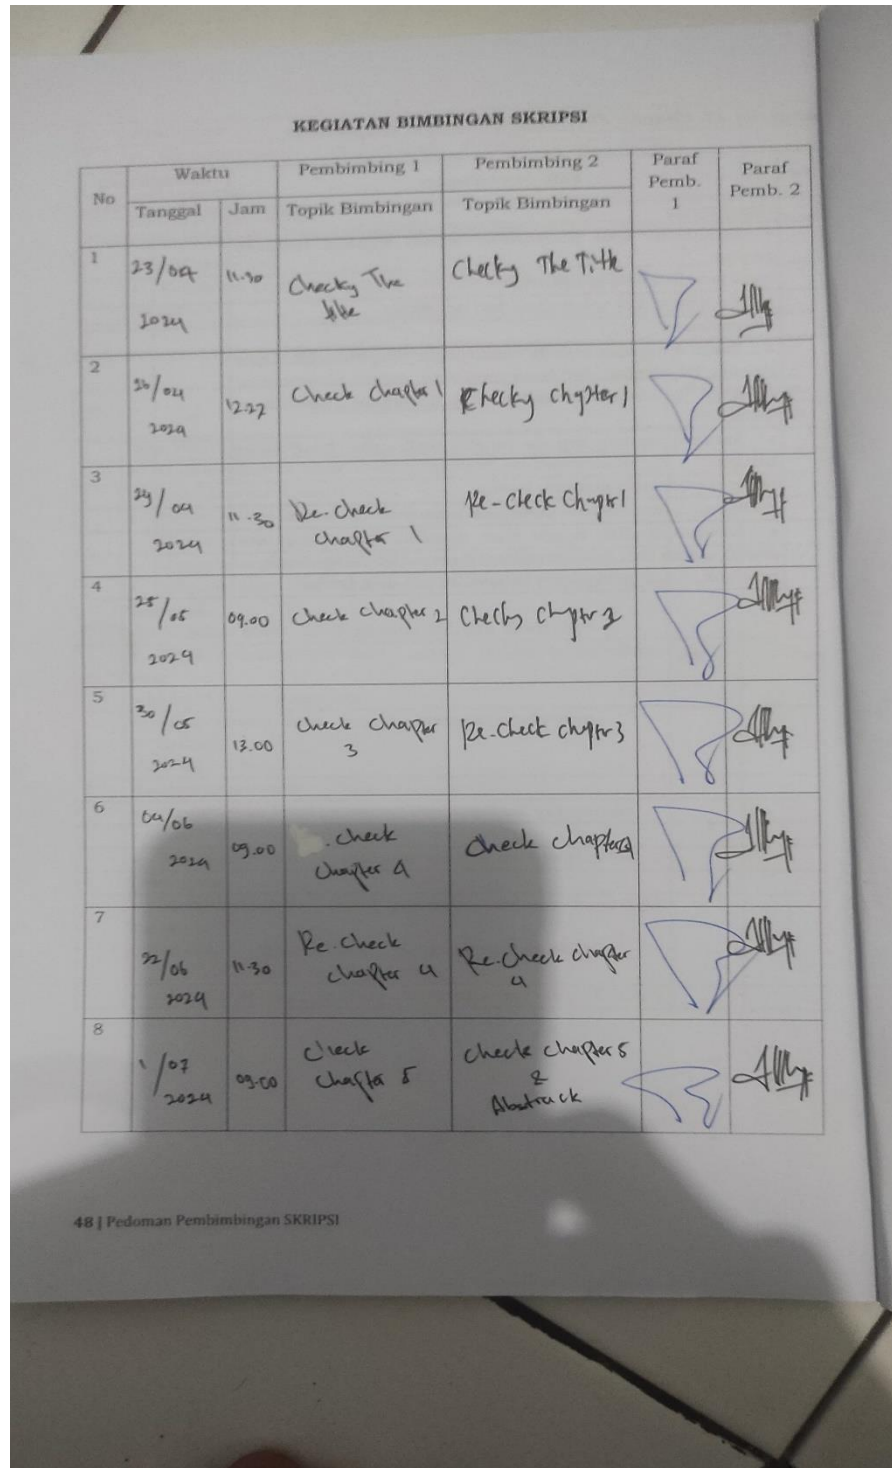 KEGIATAN BIMBINGAN SKRIPSI
No
Waktu
Pembimbing 1
Pembimbing 2
Paraf
Pemb.
1
Paraf
Pemb. 2
Tanggal
Jam
Topik Bimbingan
Topik Bimbingan
1
23/04
2024
11.30
Checky The
title
Checky The Title
2
26/04
2024
12.27
Check chapter 1
Checky chapter 1
3
29/04
2024
11.30
Re-check
chapter 1
Re-check Chapter 1
4
25/05
2024
09.00
Check chapter 2
5
30/05
2024
13.00
Check chapter
3
Re-check chapter 3
6
04/06
2024
09.00
check
chapter 4
check chapter 4
7
22/06
2024
11.30
Re-check
chapter 4
Re-check chapter
4
8
1/07
2024
09.00
check
chapter 5
check chapter 5
&
Abstrack
48 | Pedoman Pembimbingan SKRIPSI